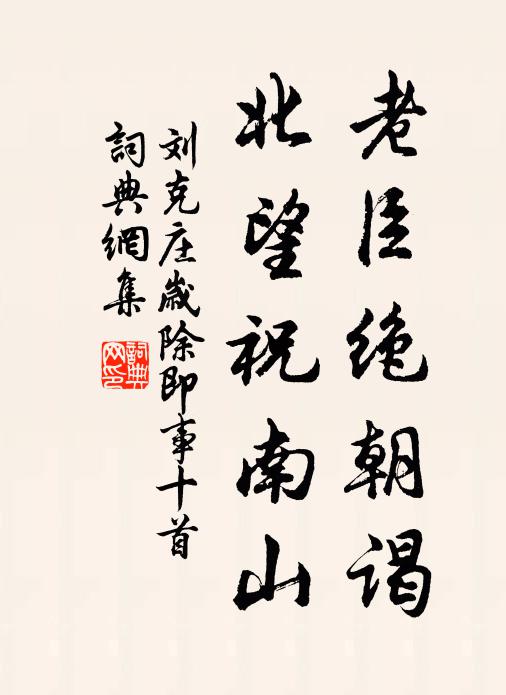 老臣绝朝谒
北望祝南山
刘克庄歲除即事十首
詞典網集
詞典网印